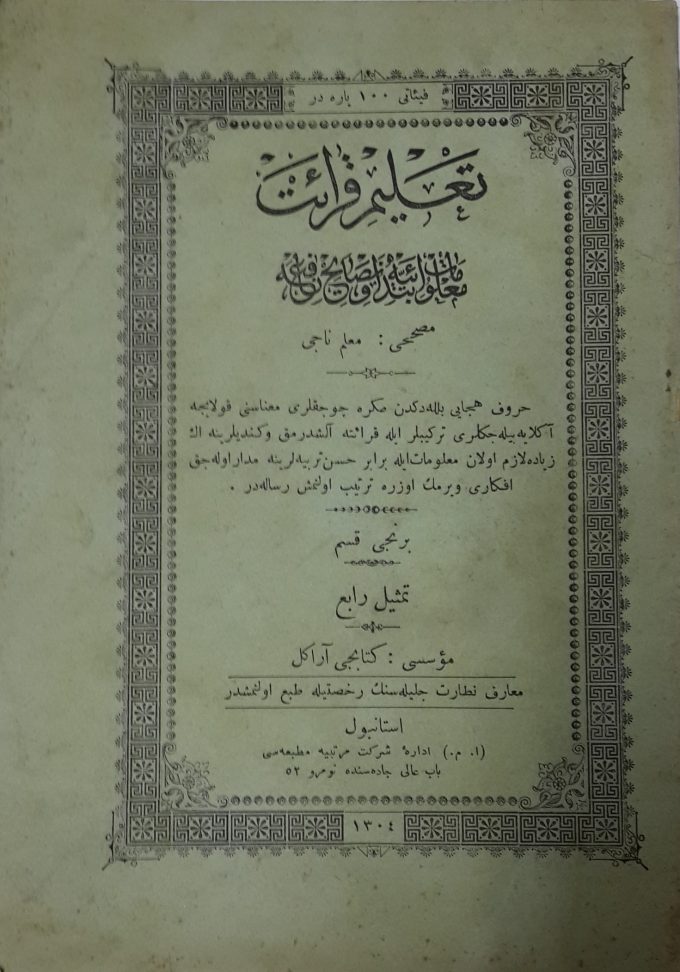 فيئاتى ١٠٠ پاره در
تعليم قرائت
معلومات ابتدائيه و نصايح نافعه
مصححى : معلم ناجى
حروف هجايى بللەدكدن صكره چوجقلرى معناسنى قولايجه
آكلايه بيله جكلرى تركيبلر ايله قرائته آلشدرمق و كنديلرينه اك
زياده لازم اولان معلومات ايله برابر حسن تربيه لرينه مدار اوله جق
افكارى ويرمك اوزره ترتيب اولنمش رساله در .
برنجى قسم
تمثيل رابع
مؤسسى : كتابجى آراكل
معارف نظارت جليله سنك رخصتيله طبع اولنمشدر
استانبول
(ا. م.) ادارهٔ شركت مرتبيه مطبعه سى
باب عالى جاده سنده نومرو ٥٢
١٣٠٤